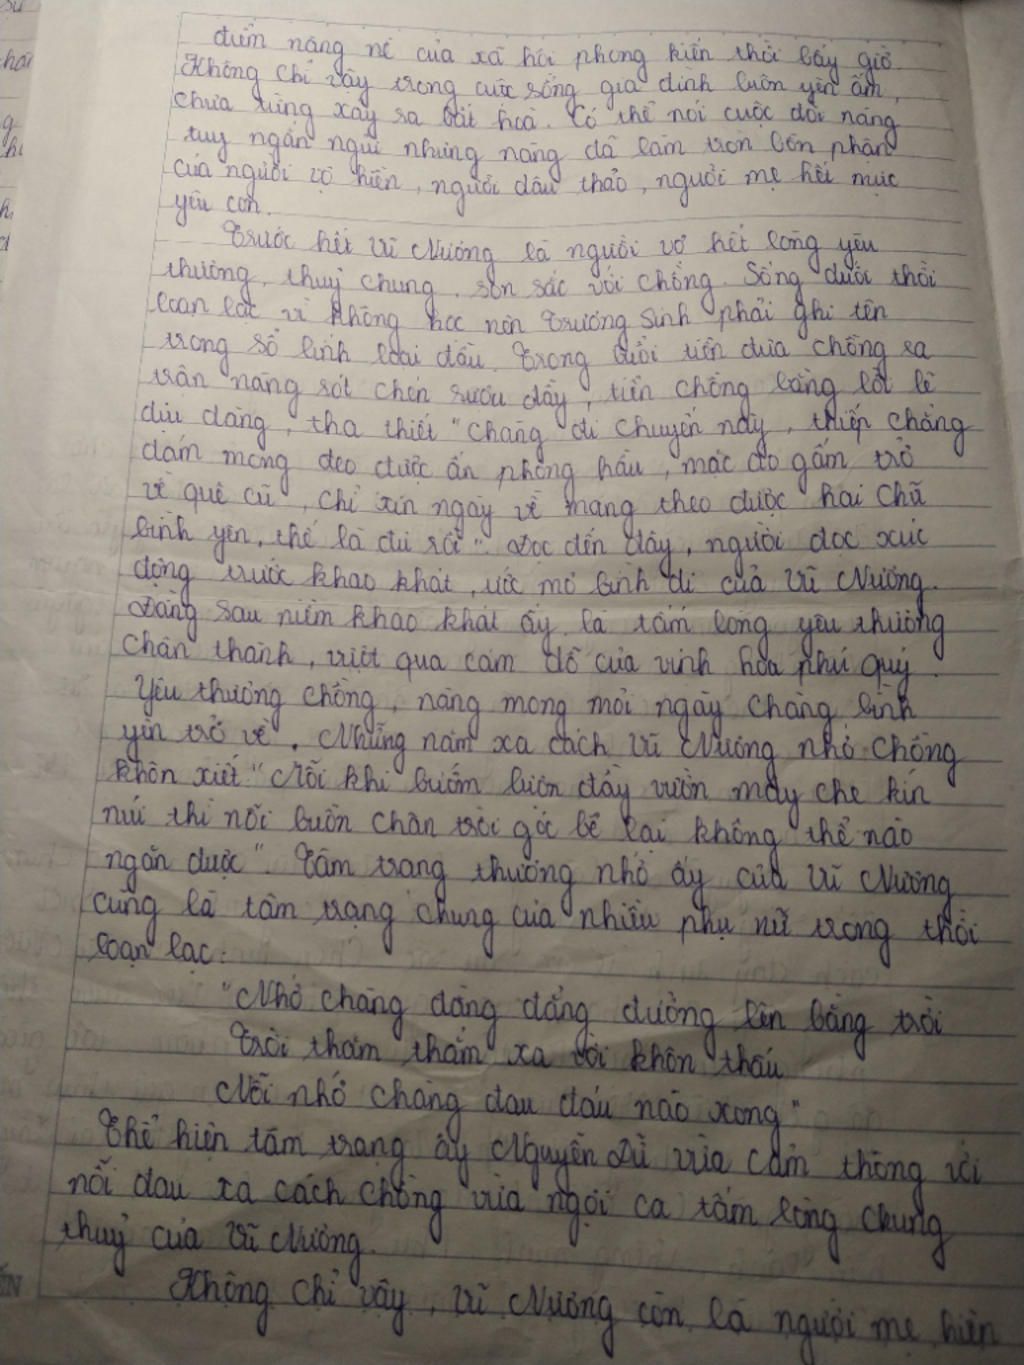 điểm nặng nề của xã hội phong kiến thời bấy giờ.
Không chỉ vậy trong cuộc sống gia đình luôn yên ấm,
chưa từng xảy ra bất hoà. Có thể nói cuộc đời nàng
tuy ngắn ngủi nhưng nàng đã làm tròn bổn phận
của người vợ hiền, người dâu thảo, người mẹ hết mực
yêu con.
Trước hết Vũ Nương là người vợ hết lòng yêu
thương, thuỷ chung, son sắc với chồng. Sống dưới thời
loạn lạc vì không học nên Trương Sinh phải ghi tên
trong sổ lính loại đầu. Trong buổi tiễn đưa chồng ra
trận nàng rót chén rượu đầy, tiễn chồng bằng lời lẽ
dịu dàng, tha thiết "Chàng đi chuyến này, thiếp chẳng
dám mong đeo được ấn phong hầu, mặc áo gấm trở
về quê cũ, chỉ xin ngày về mang theo được hai chữ
bình yên, thế là đủ rồi". Đọc đến đây, người đọc xúc
động trước khao khát, ước mơ bình dị của Vũ Nương.
Đằng sau niềm khao khát ấy là tấm lòng yêu thương
chân thành, vượt qua cám dỗ của vinh hoa phú quý.
Yêu thương chồng, nàng mong mỏi ngày chàng bình
yên trở về. Những năm xa cách Vũ Nương nhớ chồng
khôn xiết "Mỗi khi bướm lượn đầy vườn mây che kín
núi thì nỗi buồn chân trời góc bể lại không thể nào
ngăn được". Tâm trạng thương nhớ ấy của Vũ Nương
cũng là tâm trạng chung của nhiều phụ nữ trong thời
loạn lạc:
"Nhớ chàng đằng đẵng đường lên bằng trời
Trời thăm thẳm xa vời khôn thấu
Nỗi nhớ chàng đau đáu nào xong"
Thể hiện tâm trạng ấy Nguyễn Dữ vừa cảm thông với
nỗi đau xa cách chồng vừa ngợi ca tấm lòng chung
thuỷ của Vũ Nương.
Không chỉ vậy, Vũ Nương còn là người mẹ hiền